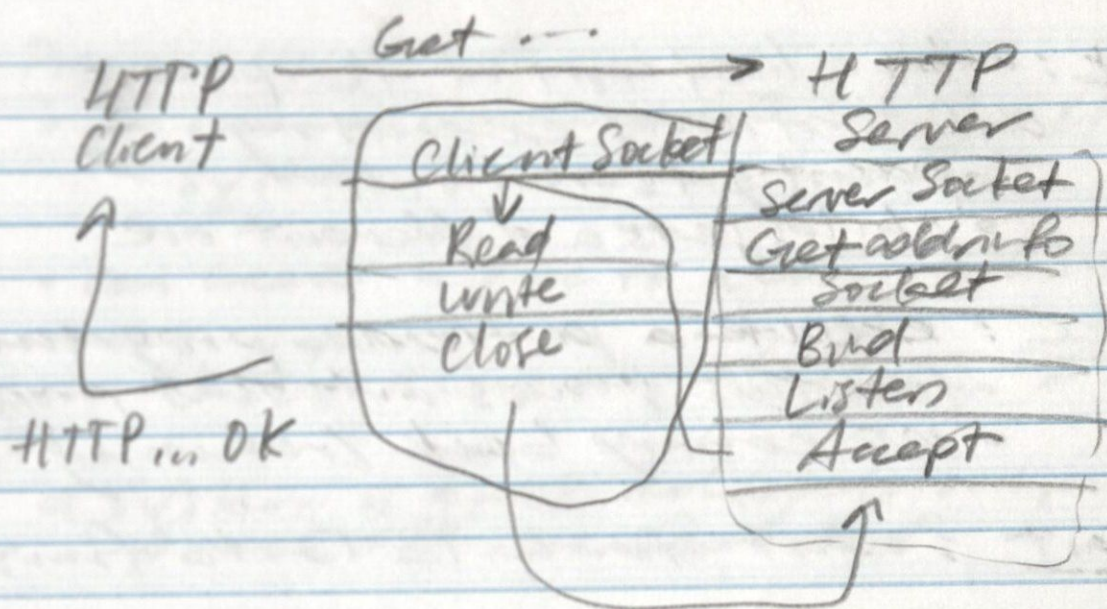 Get ....
HTTP
Client
HTTP
Server
Client Socket
Read
write
Close
HTTP... OK
Server Socket
Getaddrinfo
Socket
Bind
Listen
Accept